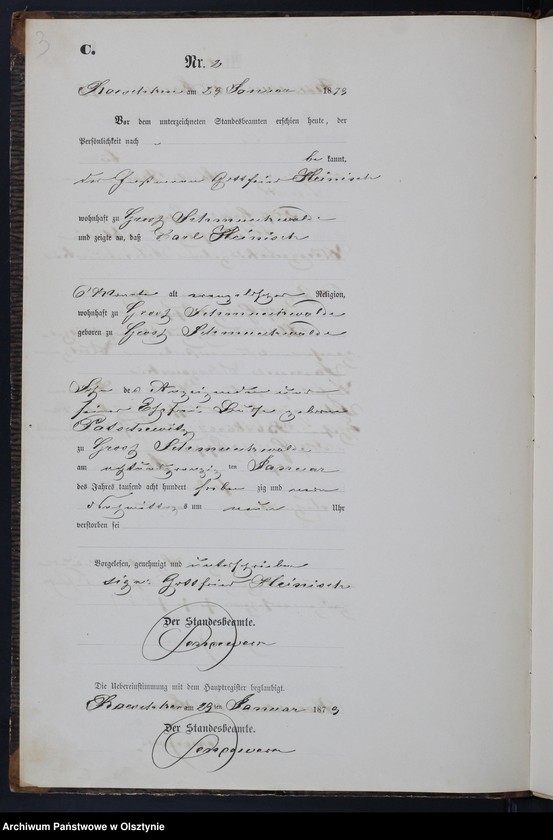 3
C.
Nr. 2
am 29 Januar 1879
Vor dem unterzeichneten Standesbeamten erschien heute, der
Persönlichkeit nach
be kannt,
der Gottfried Heinisch
wohnhaft zu Groß Schmueckwalde
und zeigte an, daß Carl Heinisch
6 Monate alt evangelischer Religion,
wohnhaft zu Groß Schmueckwalde
geboren zu Groß Schmueckwalde
Sohn des Anzeigenden und
seiner Ehefrau geborene
zu Groß Schmueckwalde
am achtundzwanzig ten Januar
des Jahres tausend acht hundert sieben zig und neun
Nachmittags um neun Uhr
verstorben sei
Vorgelesen, genehmigt und unterschrieben
sign: Gottfried Heinisch
Der Standesbeamte.
Die Uebereinstimmung mit dem Hauptregister beglaubigt.
am 29ten Januar 1879
Der Standesbeamte.
Archiwum Państwowe w Olsztynie